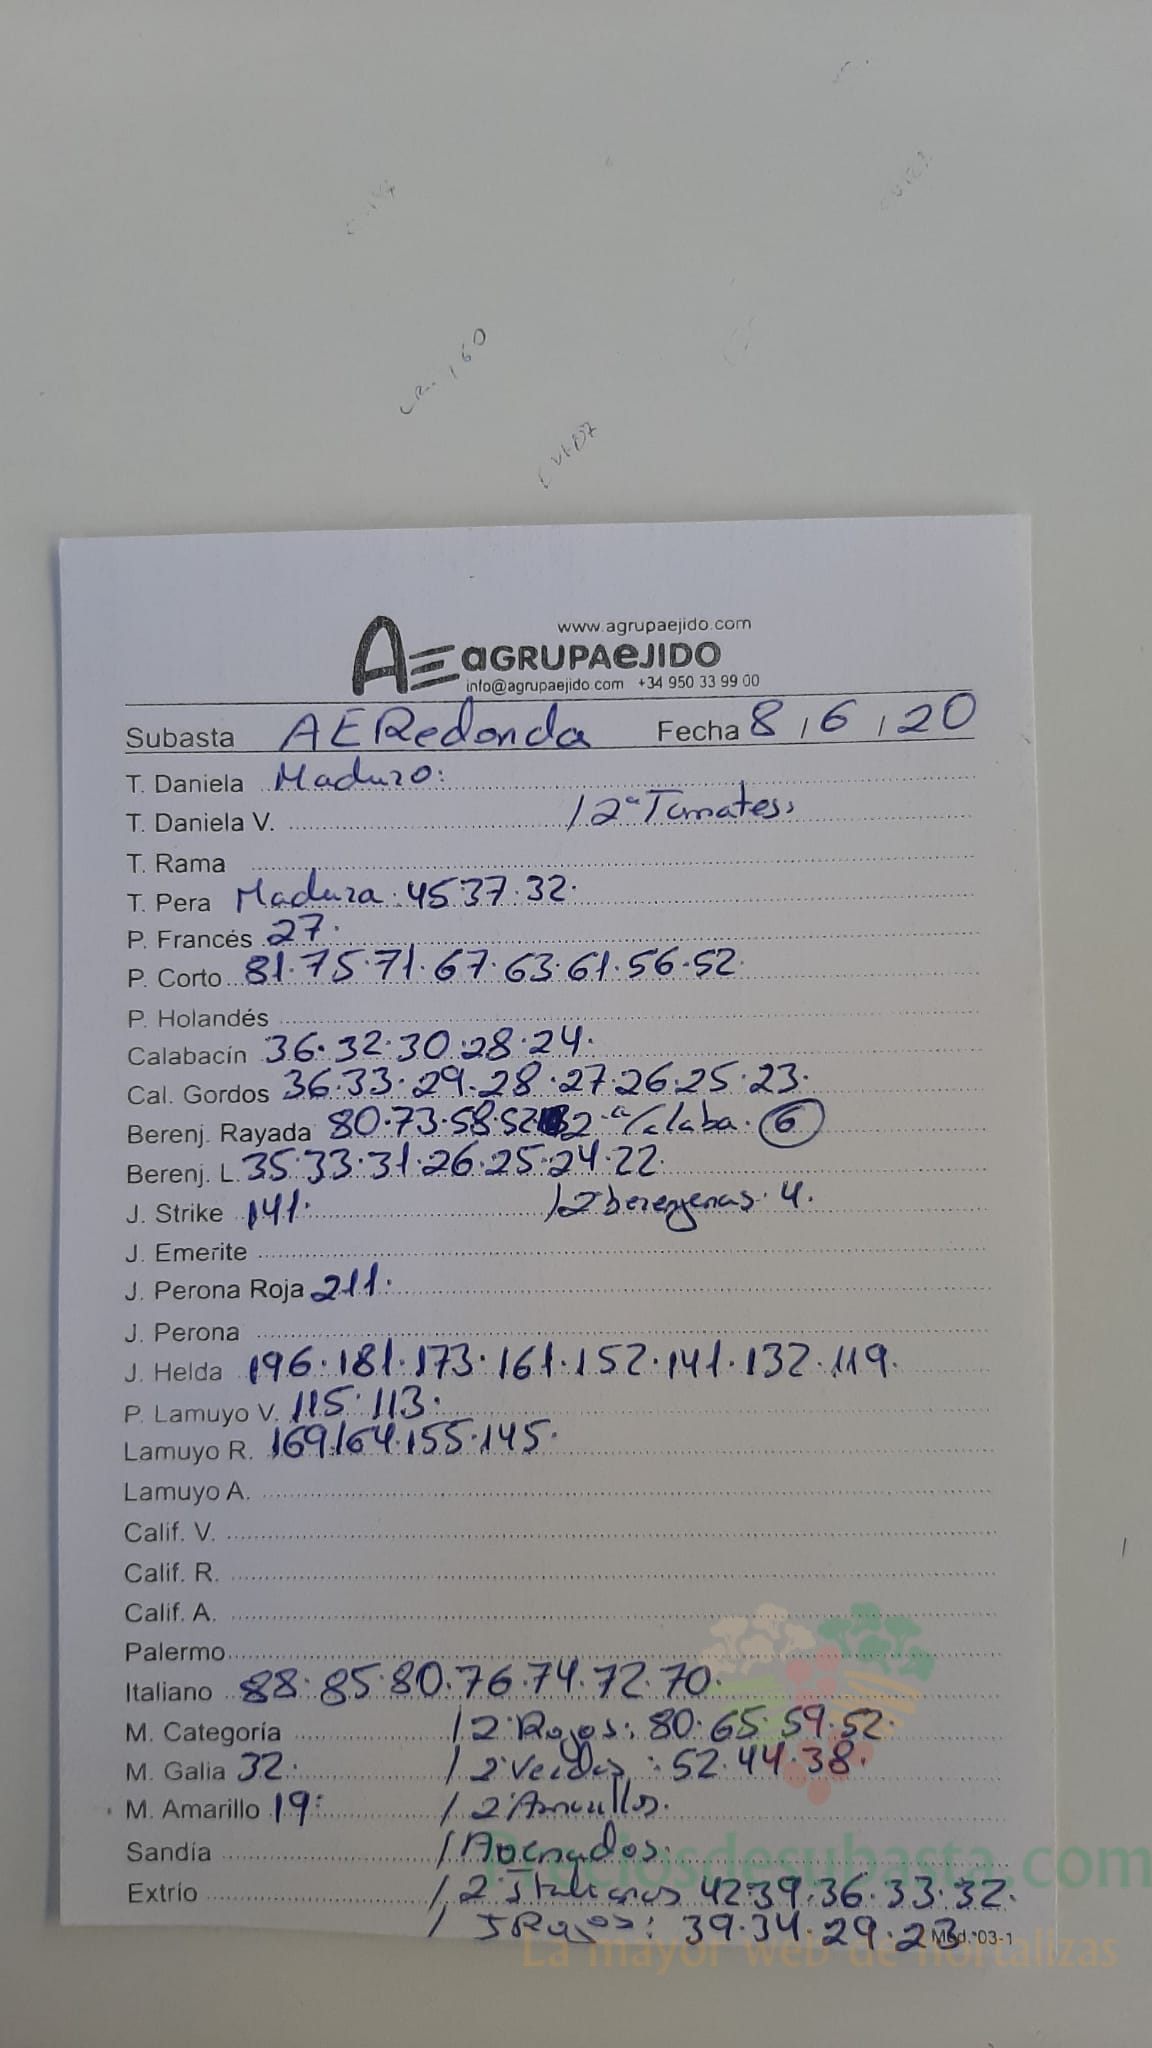 LR. 160
www.agrupaejido.com
AE aGRUPAeJIDO
info@agrupaejido.com +34 950 33 99 00
Subasta AERedonda Fecha 8/6/20
T. Daniela Maduro:
T. Daniela V. /2ª Tomates.
T. Rama
T. Pera Madura.45.37.32.
P. Francés 27.
P. Corto 81.75.71.67.63.61.56.52.
P. Holandés
Calabacín 36.32.30.28.24.
Cal. Gordos 36.33.29.28.27.26.25.23.
Berenj. Rayada 80.73.58.52. 2ª Calaba. 6
Berenj. L. 35.33.31.26.25.24.22.
J. Strike 141. /2ª berenjenas.4.
J. Emerite
J. Perona Roja 211.
J. Perona
J. Helda 196.181.173.161.152.141.132.119.
P. Lamuyo V. 115.113.
Lamuyo R. 169.164.155.145.
Lamuyo A.
Calif. V.
Calif. R.
Calif. A.
Palermo
Italiano 88.85.80.76.74.72.70.
M. Categoría /2ª Rojos: 80.65.59.52.
M. Galia 32. /2ª Verdes: 52.44.38.
M. Amarillo 19: /2ª Amarillos.
Sandía /Asenados.
Extrío /2ª Italianos 42.39.36.33.32.
/JRojos: 39.34.29.23
Mod. 03-1
Preciosdesubasta.com
La mayor web de hortalizas